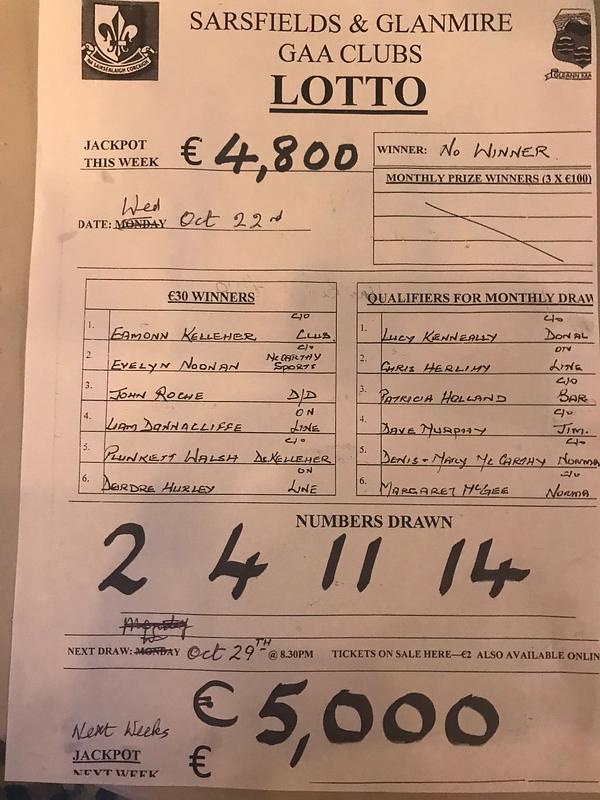 SARSFIELDS & GLANMIRE
GAA CLUBS
LOTTO
JACKPOT THIS WEEK € 4,800
WINNER: NO WINNER
MONTHLY PRIZE WINNERS (3 X €100)
Wed
DATE: MONDAY Oct 22nd
€30 WINNERS
1. EAMONN KELLEHER C/O CLUB.
2. EVELYN NOONAN C/O McCARTHY SPORTS
3. JOHN ROCHE D/D
4. LIAM DANNACLIFFE ON LINE
5. PLUNKETT WALSH C/O DK KELLEHER
6. DEIRDRE HURLEY ON LINE
QUALIFIERS FOR MONTHLY DRAW
1. LUCY KENNEALLY C/O DONAL
2. CHRIS HERLIHY ON LINE
3. PATRICIA HOLLAND C/O BAR
4. DAVE MURPHY C/O JIM.
5. DENIS + MARY Mc CARTHY C/O NORMA
6. MARGARET McGEE C/O NORMA
NUMBERS DRAWN
2 4 11 14
Monday
NEXT DRAW: MONDAY Oct 29TH @ 8.30PM TICKETS ON SALE HERE—€2 ALSO AVAILABLE ONLIN
€5,000
Next Weeks
JACKPOT €
NEXT WEEK